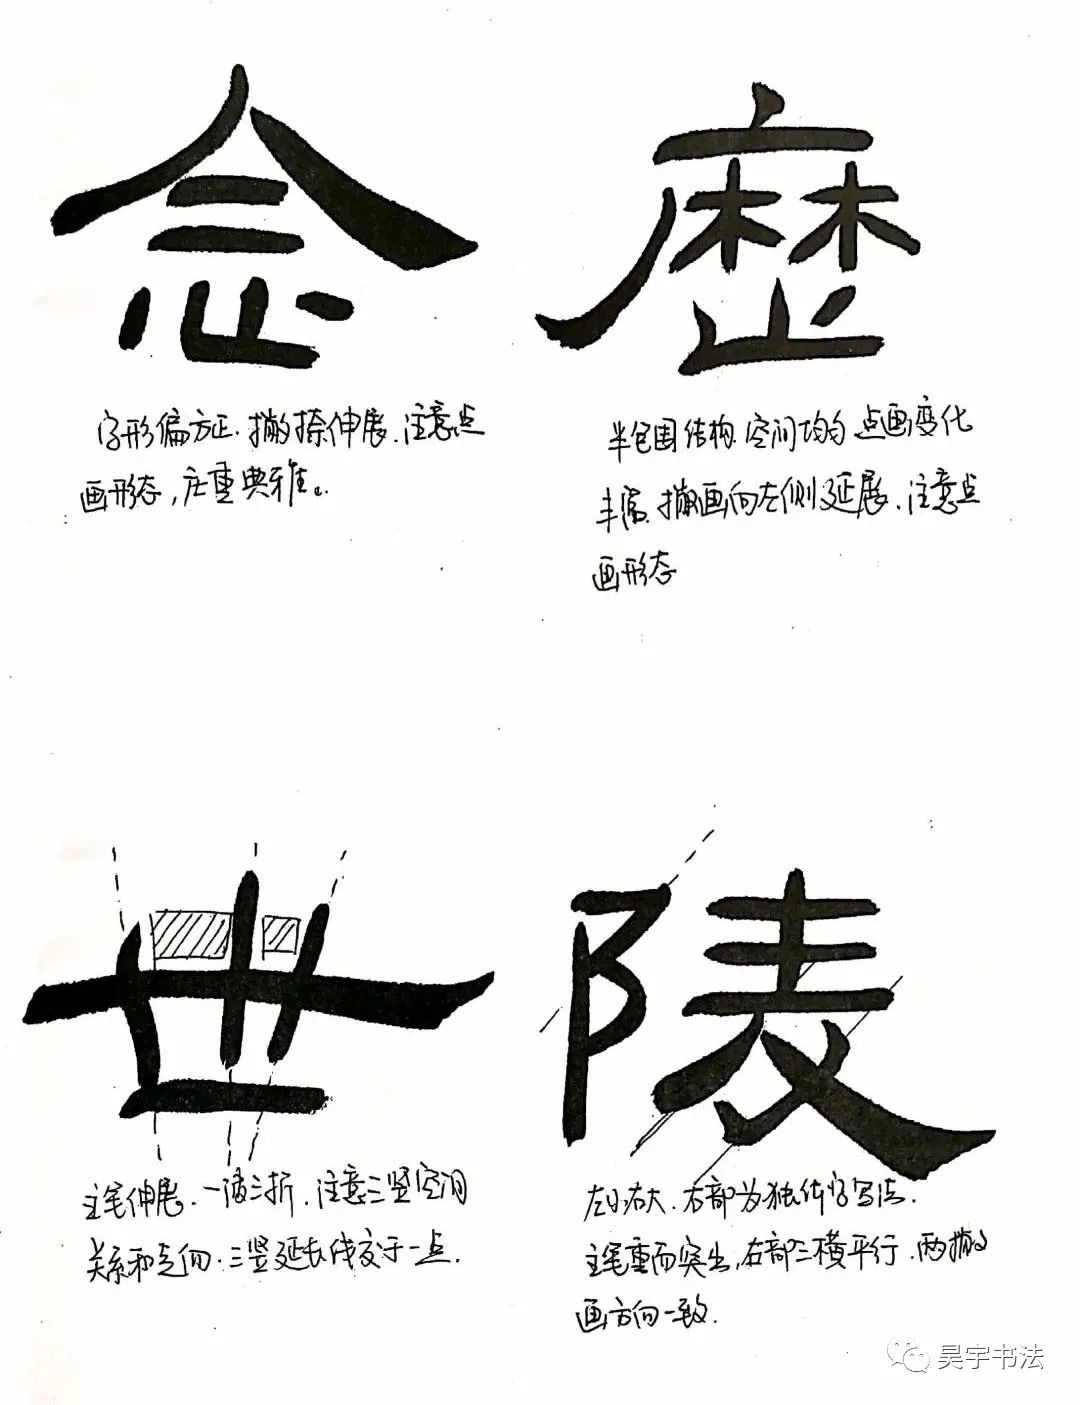 念
字形偏方正.撇捺伸展.注意点
画形态，庄重典雅。
歷
半包围结构.空间均匀.点画变化
丰富.撇画向左侧延展.注意点
画形态
世
主笔伸展.一波三折.注意三竖空间
关系和走向.三竖延长线交于一点.
陵
左小右大.右部为独体字写法.
主笔重而突出,右部三横平行.两撇
画方向一致.
昊宇书法